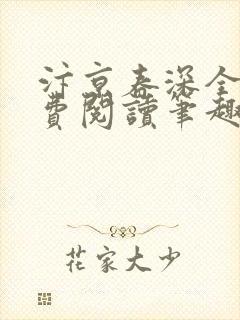 汴京春深全
費閱讀筆趣
花家大少